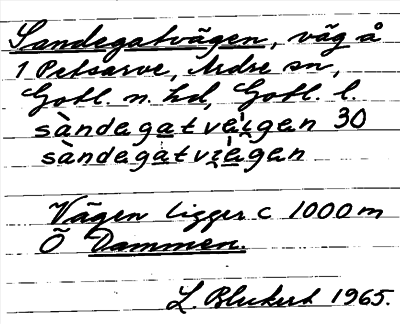 Sandegatvägen, väg å
1 Petsarve, Ardre sn,
Gotl. n. hd, Gotl. l.
sàndegatvęgen 30
sàndegatvęgen
Vägen ligger c 1000 m
Ö Dammen.
L. Bleckert 1965.